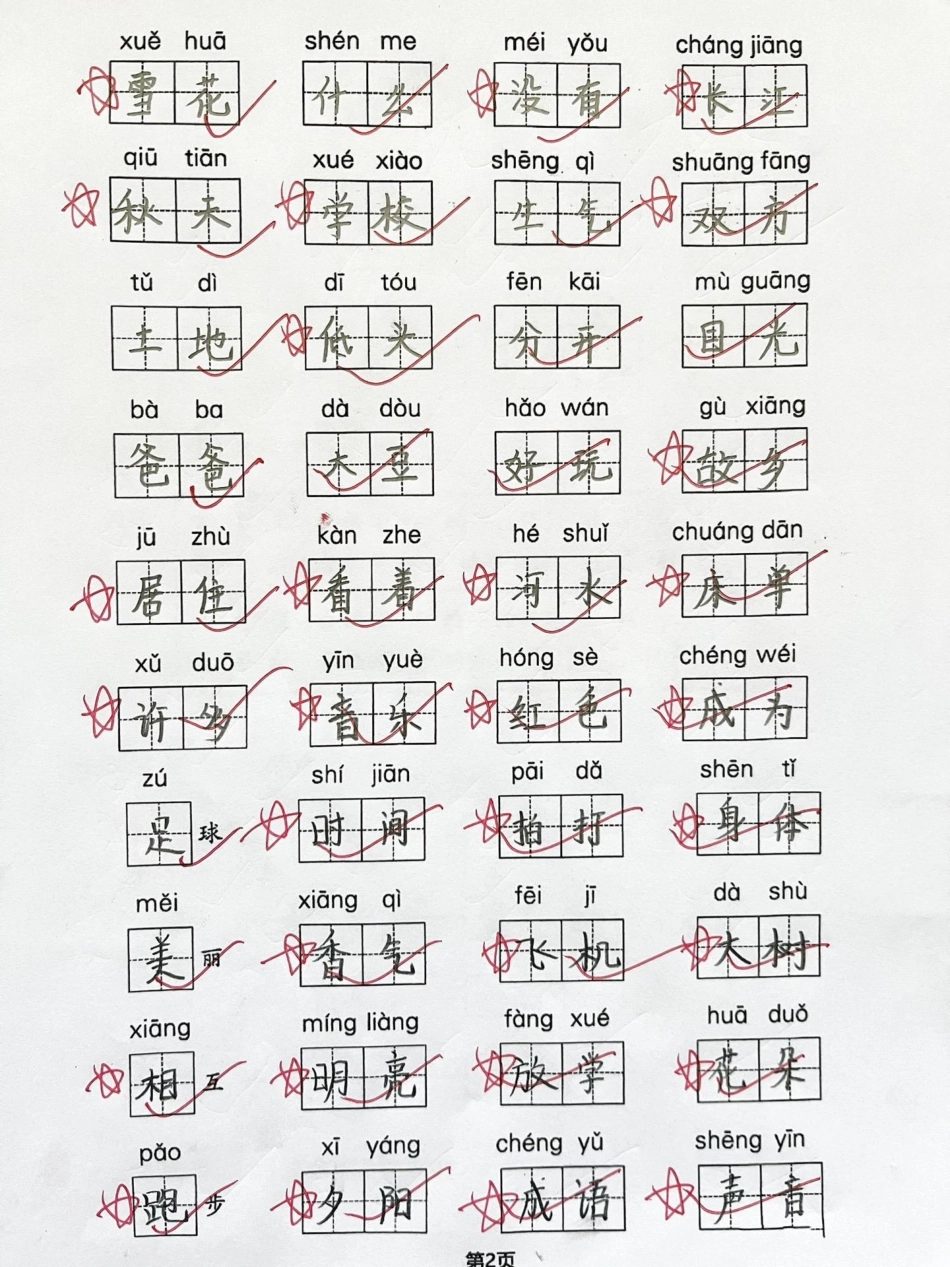 xuě huā shén me méi yǒu cháng jiāng
雪花 什么 没有 长江
qiū tiān xué xiào shēng qì shuāng fāng
秋天 学校 生气 双方
tǔ dì dī tóu fēn kāi mù guāng
土地 低头 分开 目光
bà ba dà dòu hǎo wán gù xiāng
爸爸 大豆 好玩 故乡
jū zhù kàn zhe hé shuǐ chuáng dān
居住 看着 河水 床单
xǔ duō yīn yuè hóng sè chéng wéi
许多 音乐 红色 成为
zú shí jiān pāi dǎ shēn tǐ
足球 时间 拍打 身体
měi xiāng qì fēi jī dà shù
美丽 香气 飞机 大树
xiāng míng liàng fàng xué huā duǒ
相互 明亮 放学 花朵
pǎo xī yáng chéng yǔ shēng yīn
跑步 夕阳 成语 声音
第2页